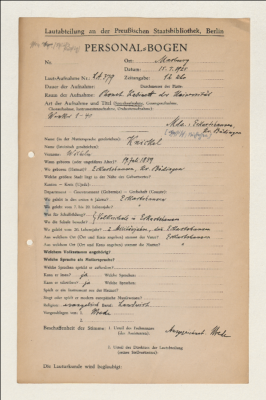 Lautabteilung an der Preußischen Staatsbibliothek, Berlin
PERSONAL-BOGEN
Nr. Ort: Marburg
Datum: 11.7.1921
Laut-Aufnahme Nr.: LA 379 Zeitangabe:
Dauer der Aufnahme: Durchmesser der Platte:
Raum der Aufnahme: der Universität
Art der Aufnahme und Titel
Wenker 1-40
Mda.: Eckartshausen,
Kr. Büdingen
Name (in der Muttersprache geschrieben):
Name (lateinisch geschrieben):
Vorname: Wilhelm
Wann geboren (oder ungefähres Alter)? 19. Juli 1879
Wo geboren (Heimat)? Eckartshausen, Kr. Büdingen
Welche größere Stadt liegt in der Nähe des Geburtsortes?
Kanton — Kreis (Ujedz)
Department — Gouvernement (Gubernija) — Grafschaft (County)
Wo gelebt in den ersten 6 Jahren? Eckartshausen
Wo gelebt vom 7. bis 20. Lebensjahr?
Was für Schulbildung? Volksschule in Eckartshausen
Wo die Schule besucht?
Wo gelebt vom 20. Lebensjahr? 2 Militärjahre, dann Eckartshausen
Aus welchem Ort (Ort und Kreis angeben) stammt der Vater? Eckartshausen
Aus welchem Ort (Ort und Kreis angeben) stammt die Mutter?
Welchem Volksstamm angehörig?
Welche Sprache als Muttersprache?
Welche Sprachen spricht er außerdem?
Kann er lesen? ja Welche Sprachen?
Kann er schreiben? ja Welche Sprachen?
Spielt er ein Instrument aus der Heimat?
Singt oder spielt er modern europäische Musikweisen?
Religion: evangelisch Beruf: Landwirt
Vorgeschlagen von: 1. Wrede
2.
Beschaffenheit der Stimme: 1. Urteil des Fachmannes
(des Assistenten)
Wrede
2. Urteil des Direktors der Lautabteilung
(seines Stellvertreters)
Die Lauturkunde wird beglaubigt: